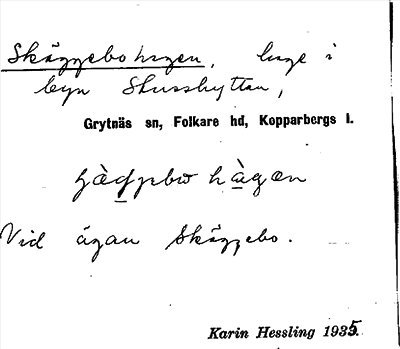 Skäggebohagen, hage i
byn Stusshyttan,
Grytnäs sn, Folkare hd, Kopparbergs l.
hàgen
Vid ägan Skäggebo.
Karin Hessling 1935.